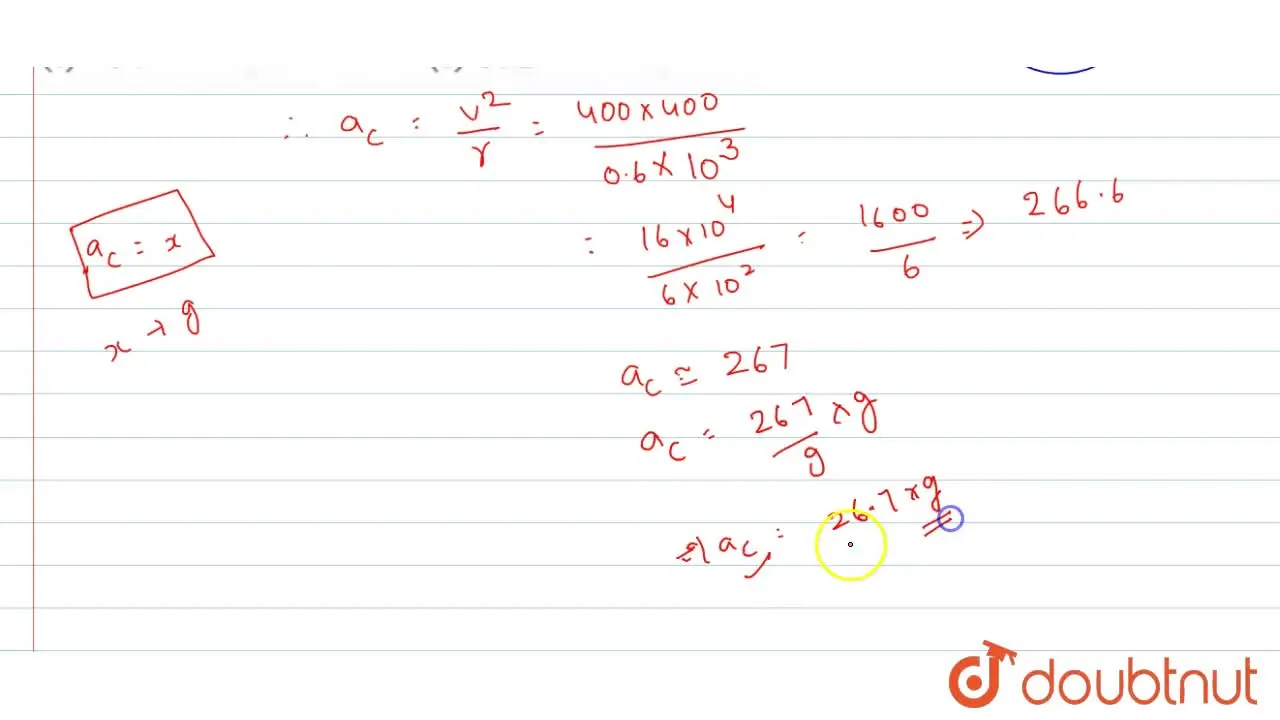 ∴ a_c = v²/r = 400 x 400 / 0.6 X 10³
= 16 x 10⁴ / 6 X 10² = 1600 / 6 ⇒ 266.6
a_c = x
x → g
a_c ≅ 267
a_c = 267/g x g
⇒ a_c = 26.7 x g
doubtnut